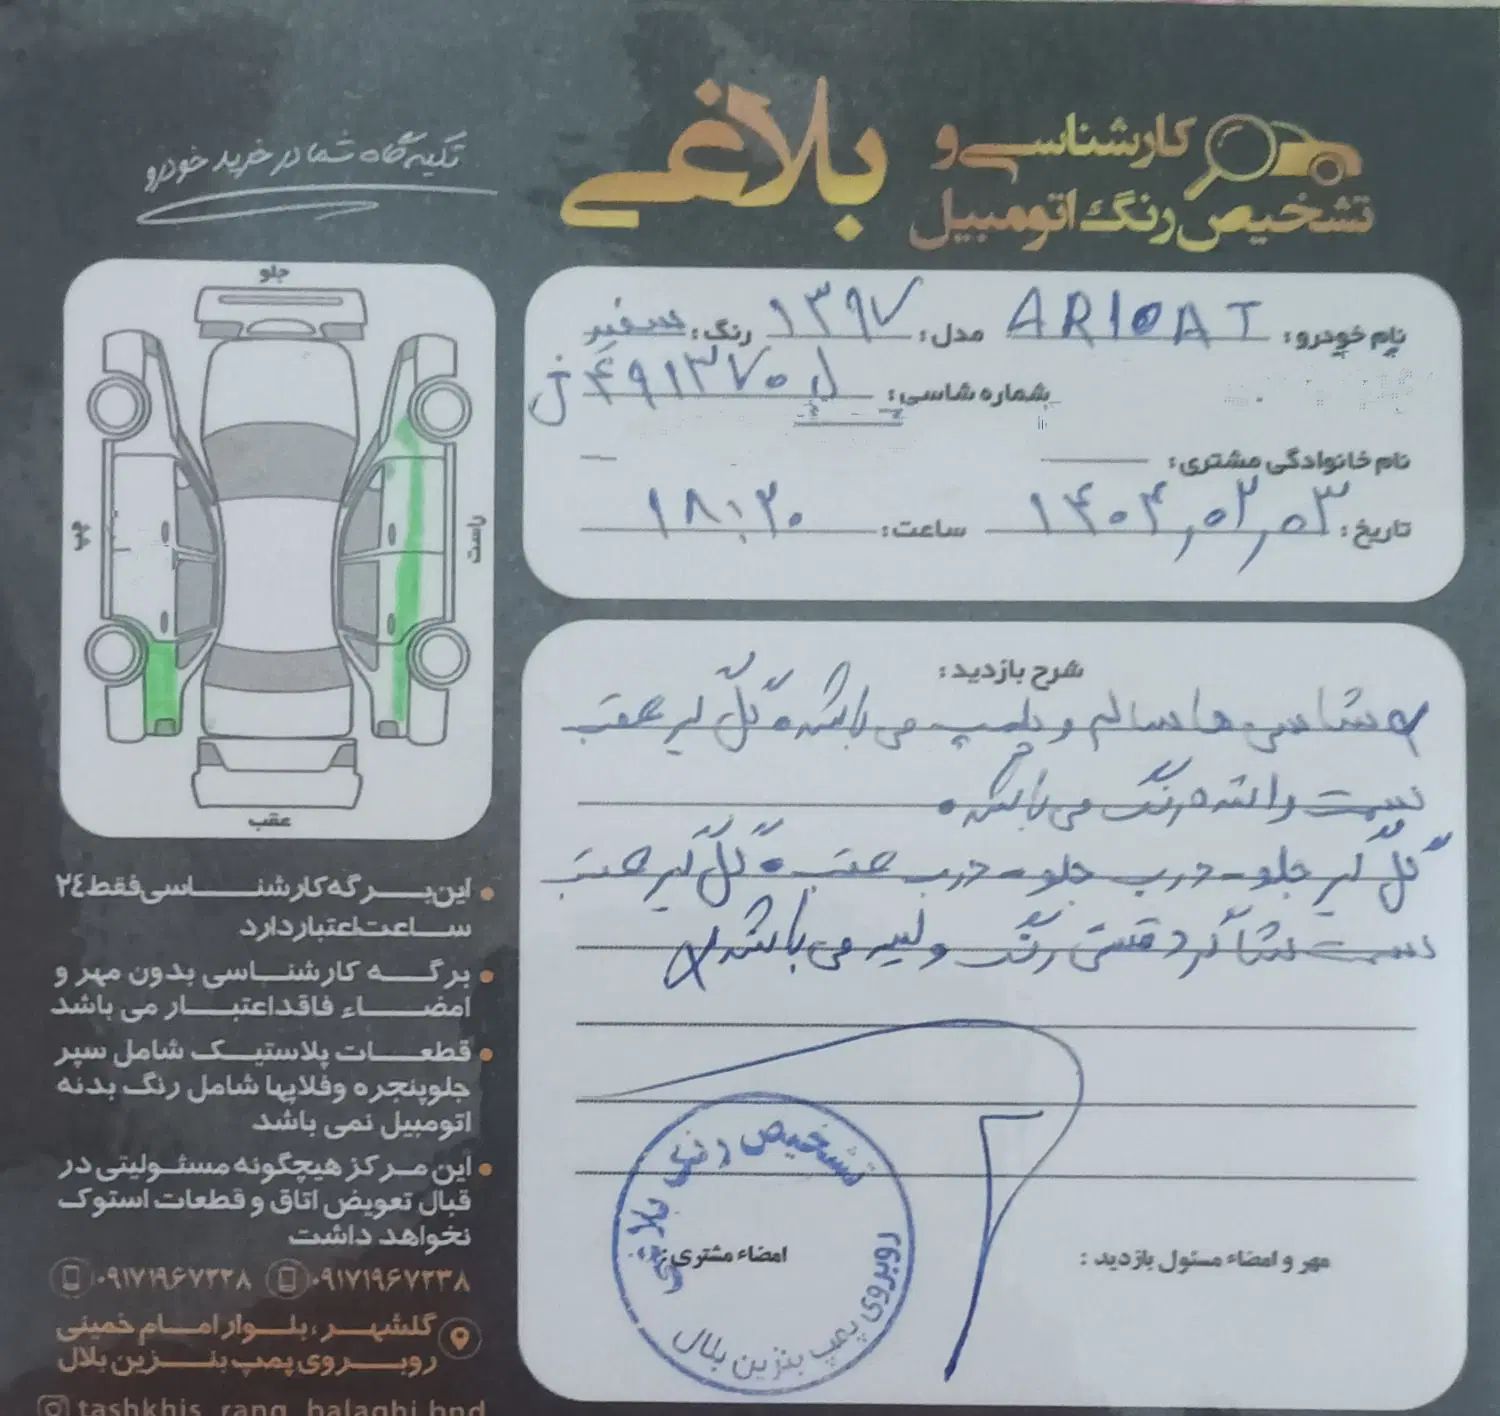 کارشناسی و
تشخیص رنگ اتومبیل
بلاغی
تکیه گاه شما در خرید خودرو
نام خودرو: ARIO AT مدل: ۱۳۹۷ رنگ: سفید
شماره شاسی:
نام خانوادگی مشتری:
تاریخ: ۱۴۰۴,۰۲,۰۳ ساعت: ۱۸:۲۰
جلو
راست
چپ
عقب
شرح بازدید:
شاسی ها سالم و پلمپ می باشد. گل گیر عقب
سمت راننده رنگ می باشد.
گل گیر جلو - درب جلو - درب عقب . گل گیر عقب
سمت شاگرد قسمتی رنگ و لیسه می باشد
مهر و امضاء مسئول بازدید :
امضاء مشتری:
تشخیص رنگ بلاغی
روبروی پمپ بنزین بلال
• این برگه کارشناسی فقط ۲٤
ساعت اعتبار دارد
• برگه کارشناسی بدون مهر و
امضاء فاقد اعتبار می باشد
• قطعات پلاستیک شامل سپر
جلوپنجره و فلاپها شامل رنگ بدنه
اتومبیل نمی باشد
• این مرکز هیچگونه مسئولیتی در
قبال تعویض اتاق و قطعات استوک
نخواهد داشت
۰۹۱۷۱۹۶۷۲۳۸ ۰۹۱۷۱۹۶۷۲۲۸
گلشهر، بلوار امام خمینی
روبروی پمپ بنزین بلال
tashkhis_rang_balaghi.bnd